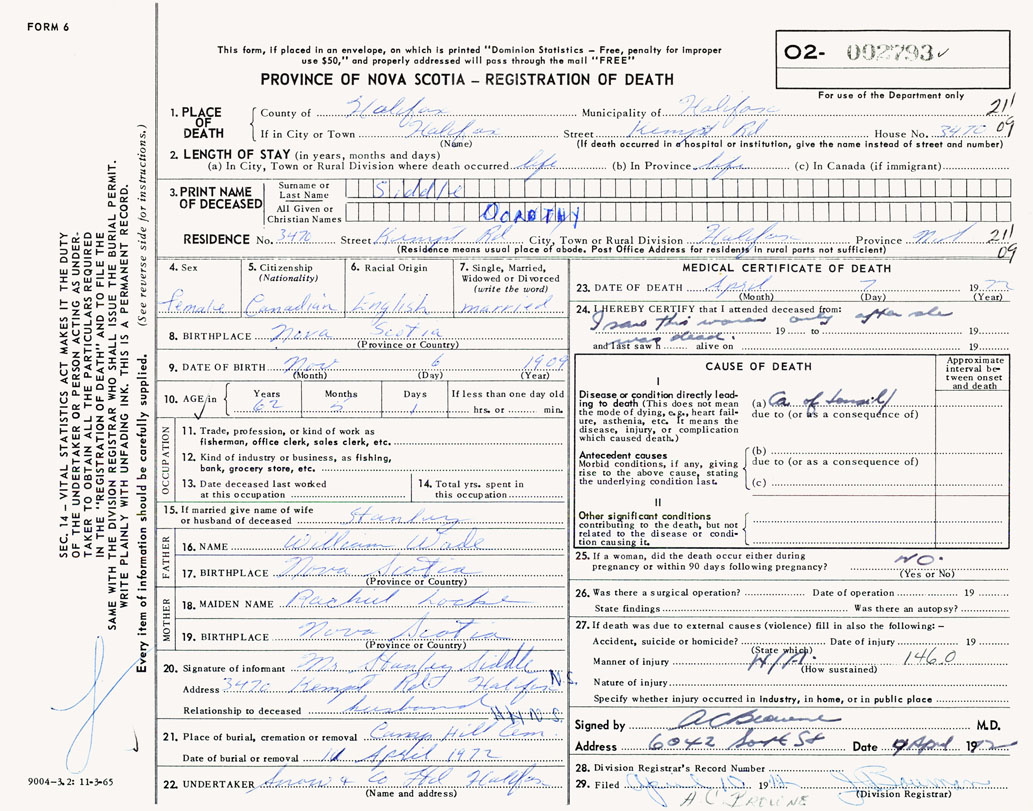 FORM 6
This form, if placed in an envelope, on which is printed "Dominion Statistics — Free, penalty for improper
use $50," and properly addressed will pass through the mail "FREE"
O2- 002793
For use of the Department only
PROVINCE OF NOVA SCOTIA — REGISTRATION OF DEATH
211
09
1. PLACE OF DEATH
County of Halifax Municipality of Halifax
If in City or Town Halifax Street Kempt Rd House No. 3470
(Name) (If death occurred in a hospital or institution, give the name instead of street and number)
2. LENGTH OF STAY (in years, months and days)
(a) In City, Town or Rural Division where death occurred life (b) In Province life (c) In Canada (if immigrant)
3. PRINT NAME OF DECEASED
Surname or Last Name Siddle
All Given or Christian Names DOROTHY
RESIDENCE No. 3470 Street Kempt Rd City, Town or Rural Division Halifax Province N.S 211
(Residence means usual place of abode. Post Office Address for residents in rural parts not sufficient) 09
4. Sex
female
5. Citizenship
(Nationality)
Canadian
6. Racial Origin
English
7. Single, Married,
Widowed or Divorced
(write the word)
married
8. BIRTHPLACE Nova Scotia
(Province or Country)
9. DATE OF BIRTH Nov 6 1909
(Month) (Day) (Year)
10. AGE in Years Months Days If less than one day old
62 5 1 hrs. or min.
OCCUPATION
11. Trade, profession, or kind of work as
fisherman, office clerk, sales clerk, etc.
12. Kind of industry or business, as fishing,
bank, grocery store, etc.
13. Date deceased last worked
at this occupation
14. Total yrs. spent in
this occupation
15. If married give name of wife
or husband of deceased Stanley
FATHER
16. NAME William Wade
17. BIRTHPLACE Nova Scotia
(Province or Country)
MOTHER
18. MAIDEN NAME Rachel Locke
19. BIRTHPLACE Nova Scotia
(Province or Country)
20. Signature of informant Mr Stanley Siddle
Address 3470 Kempt Rd Halifax N.S.
Relationship to deceased husband
21. Place of burial, cremation or removal Camp Hill Cem.
Date of burial or removal 11 April 1972
22. UNDERTAKER Snow & Co Ltd Halifax
(Name and address)
MEDICAL CERTIFICATE OF DEATH
23. DATE OF DEATH April 7 1972
(Month) (Day) (Year)
24. I HEREBY CERTIFY that I attended deceased from:
I saw this woman only after she
19 to 19
was dead.
and last saw h alive on 19
CAUSE OF DEATH
Approximate
interval be-
tween onset
and death
I
Disease or condition directly lead-
ing to death (This does not mean
the mode of dying, e.g., heart fail-
ure, asthenia, etc. It means the
disease, injury, or complication
which caused death.)
(a) Ca of tonsil
due to (or as a consequence of)
Antecedent causes
Morbid conditions, if any, giving
rise to the above cause, stating
the underlying condition last.
(b)
due to (or as a consequence of)
(c)
II
Other significant conditions
contributing to the death, but not
related to the disease or condi-
tion causing it.
25. If a woman, did the death occur either during
pregnancy or within 90 days following pregnancy? NO.
(Yes or No)
26. Was there a surgical operation? Date of operation 19
State findings Was there an autopsy?
27. If death was due to external causes (violence) fill in also the following:—
Accident, suicide or homicide? Date of injury 19
(State which)
Manner of injury N/A. 146.0
(How sustained)
Nature of injury
Specify whether injury occurred in Industry, in home, or in public place
Signed by A C Browne M.D.
Address 6042 South St Date 9 April 1972
28. Division Registrar's Record Number
29. Filed April 10 19
(Division Registrar)
SEC. 14 — VITAL STATISTICS ACT MAKES IT THE DUTY
OF THE UNDERTAKER OR PERSON ACTING AS UNDER-
TAKER TO OBTAIN ALL THE PARTICULARS REQUIRED
IN THE "REGISTRATION OF DEATH" AND TO FILE THE
SAME WITH THE DIVISION REGISTRAR WHO SHALL ISSUE THE BURIAL PERMIT.
WRITE PLAINLY WITH UNFADING INK. THIS IS A PERMANENT RECORD.
Every item of information should be carefully supplied. (See reverse side for instructions.)
9004-3.2: 11-3-65